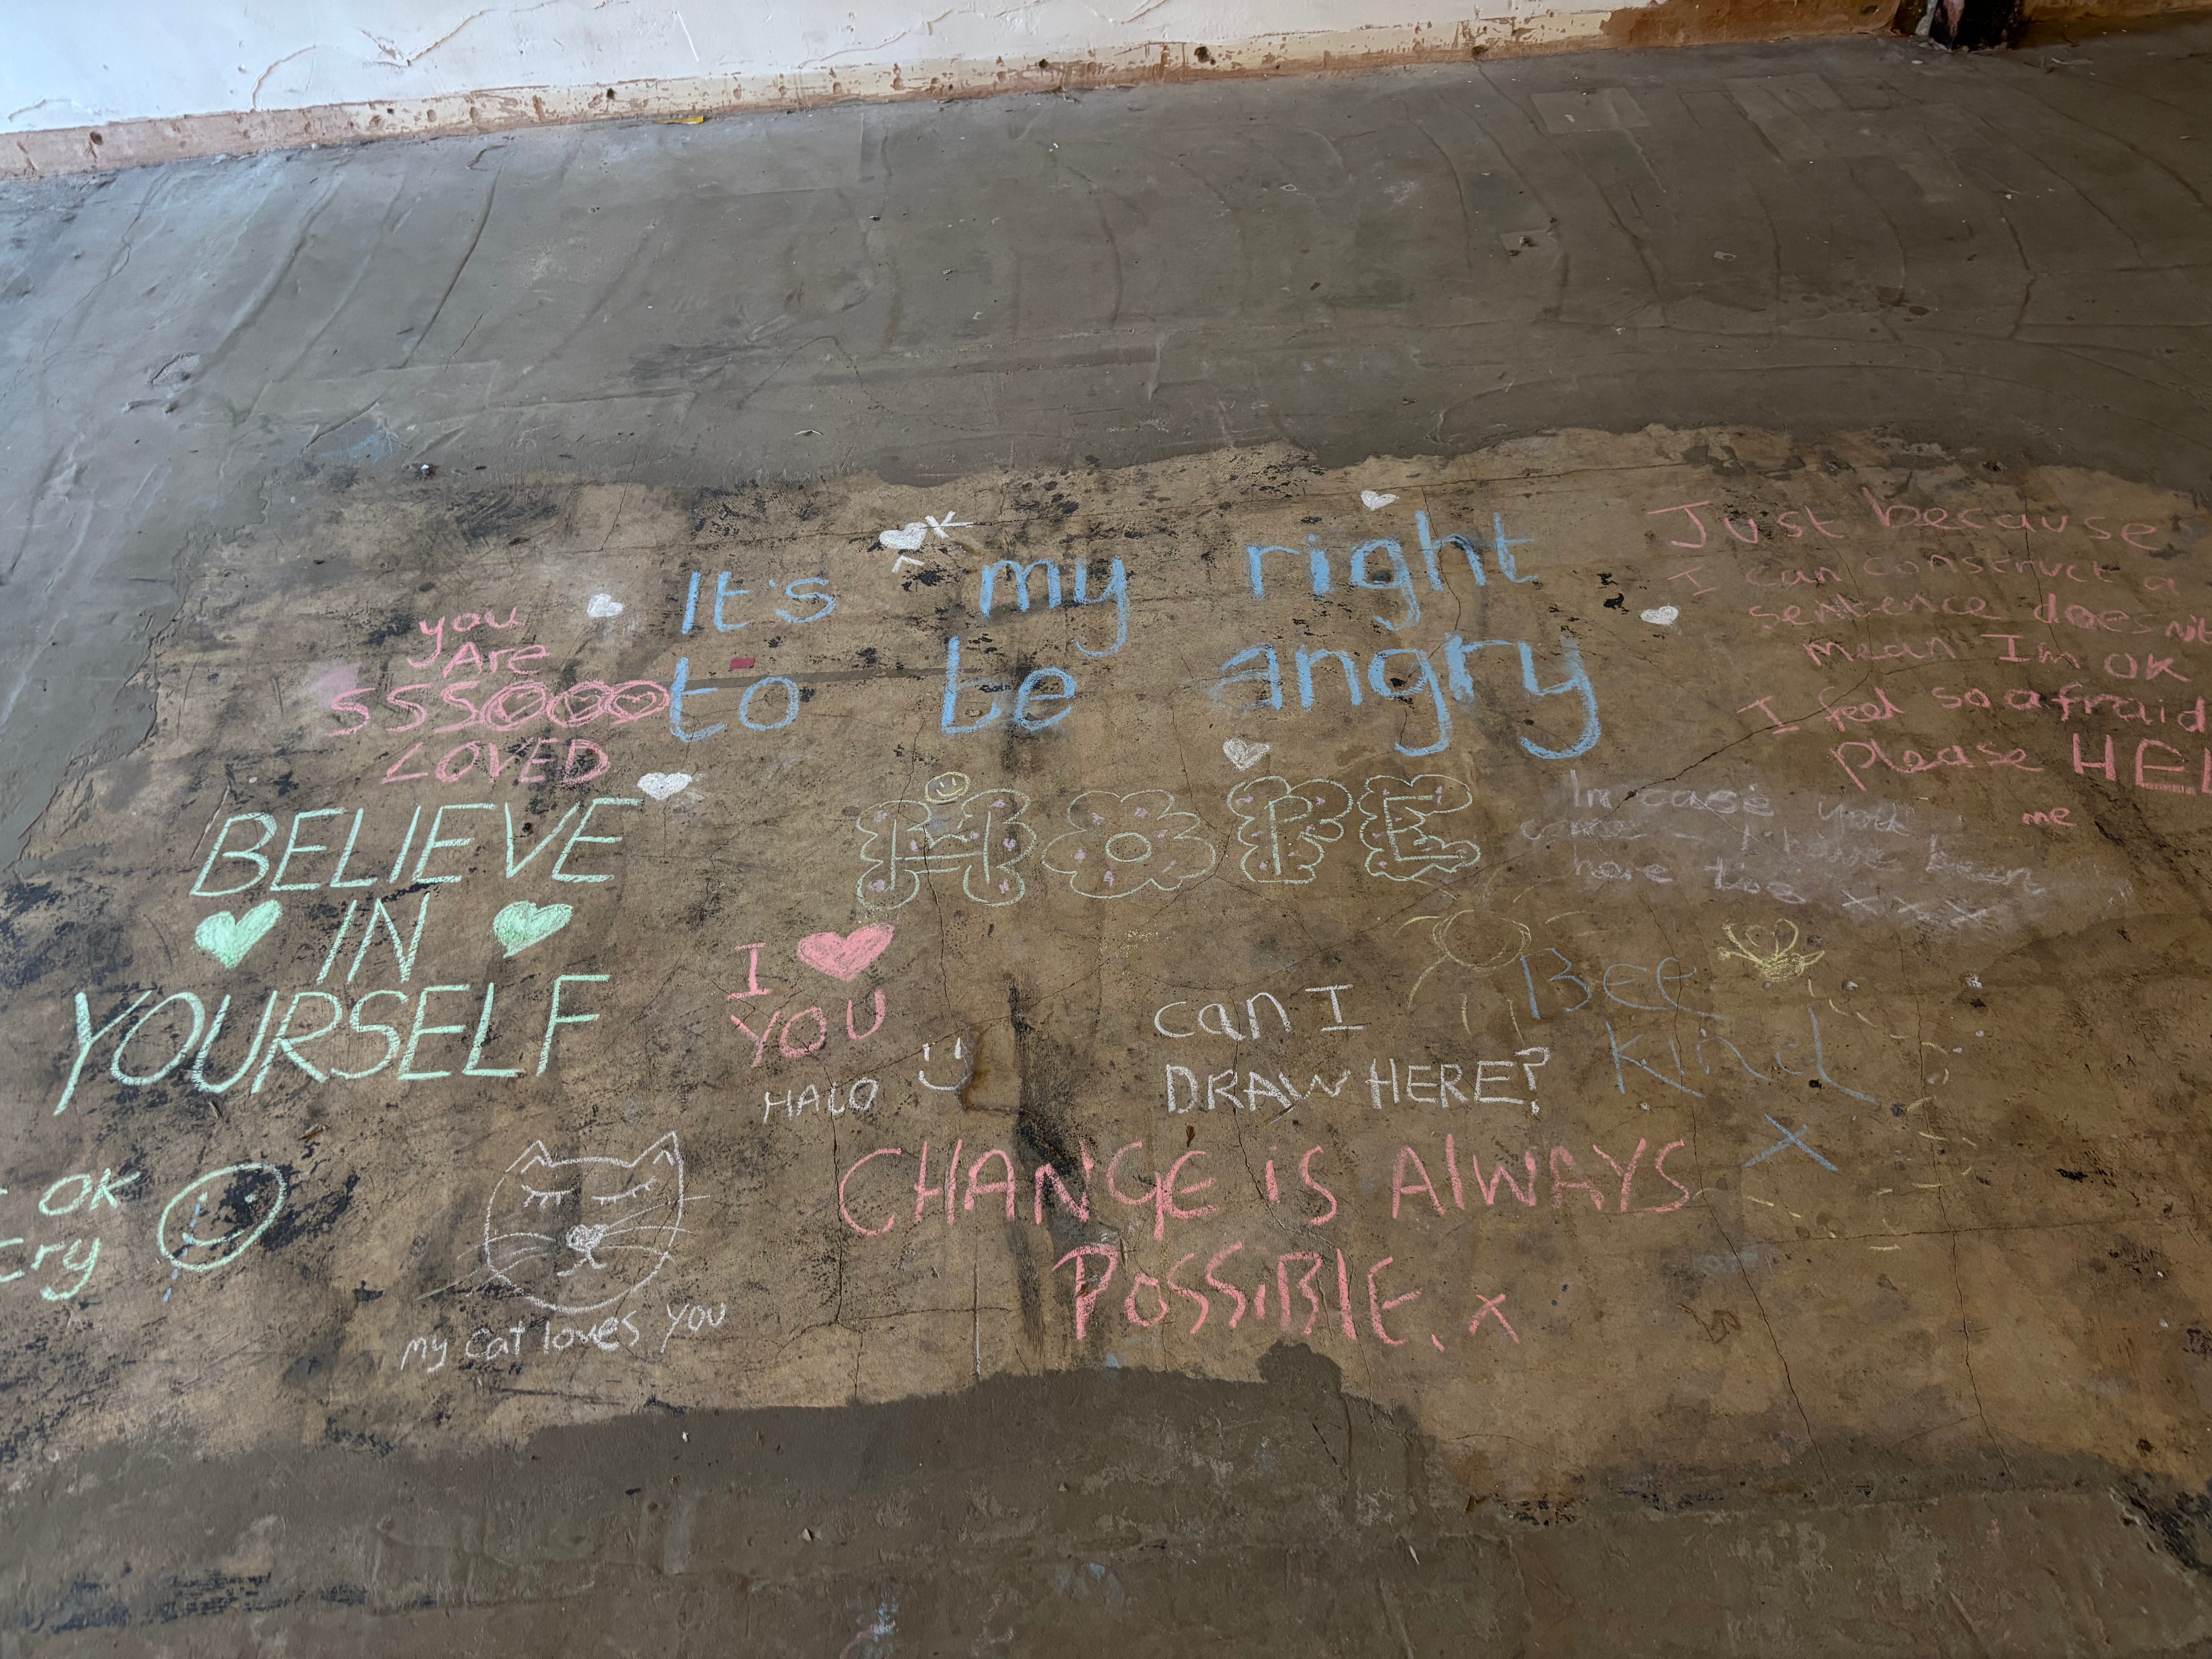 It's my right
to be angry
you
Are
SSSOOOO
LOVED
Just because
I can construct a
sentence does not
mean Im OK
I feel so afraid
please HEL
me
BELIEVE
IN
YOURSELF
HOPE
In case you
I have been
here too x x x
I
YOU
HALO
can I
DRAW HERE?
Bee
Kind
X
OK
cry
my cat loves you
CHANGE IS ALWAYS
POSSiBlE. x